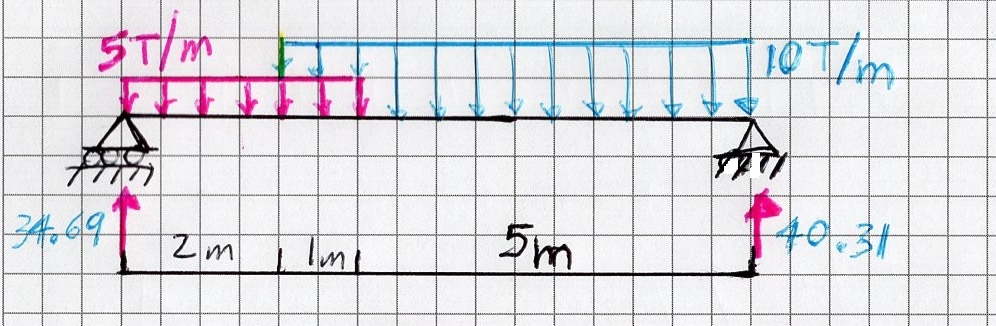 5T/m
10T/m
34.69
2m
1m
5m
40.31